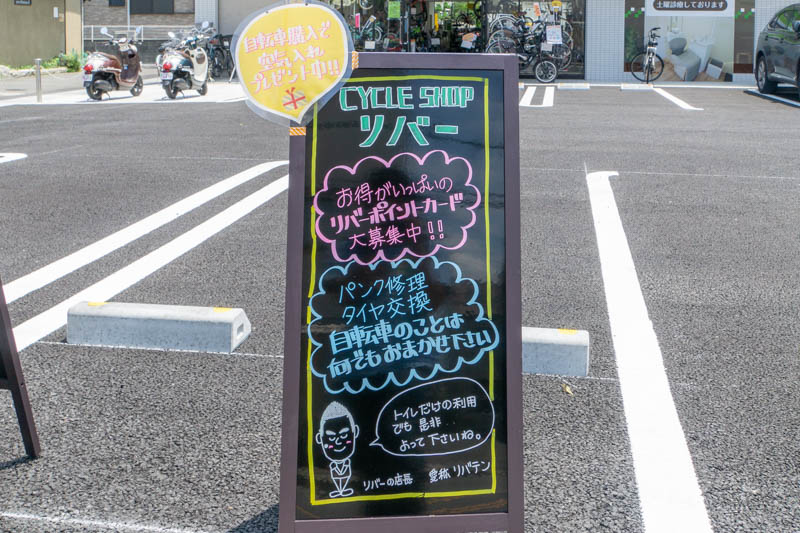 土曜診療しております
自転車購入で
空気入れ
プレゼント中!!
CYCLE SHOP
リバー
お得がいっぱいの
リバーポイントカード
大募集中!!
パンク修理
タイヤ交換
自転車のことは
何でもおまかせ下さい
トイレだけの利用
でも 是非
よって下さいね。
リバーの店長 愛称 リバテン